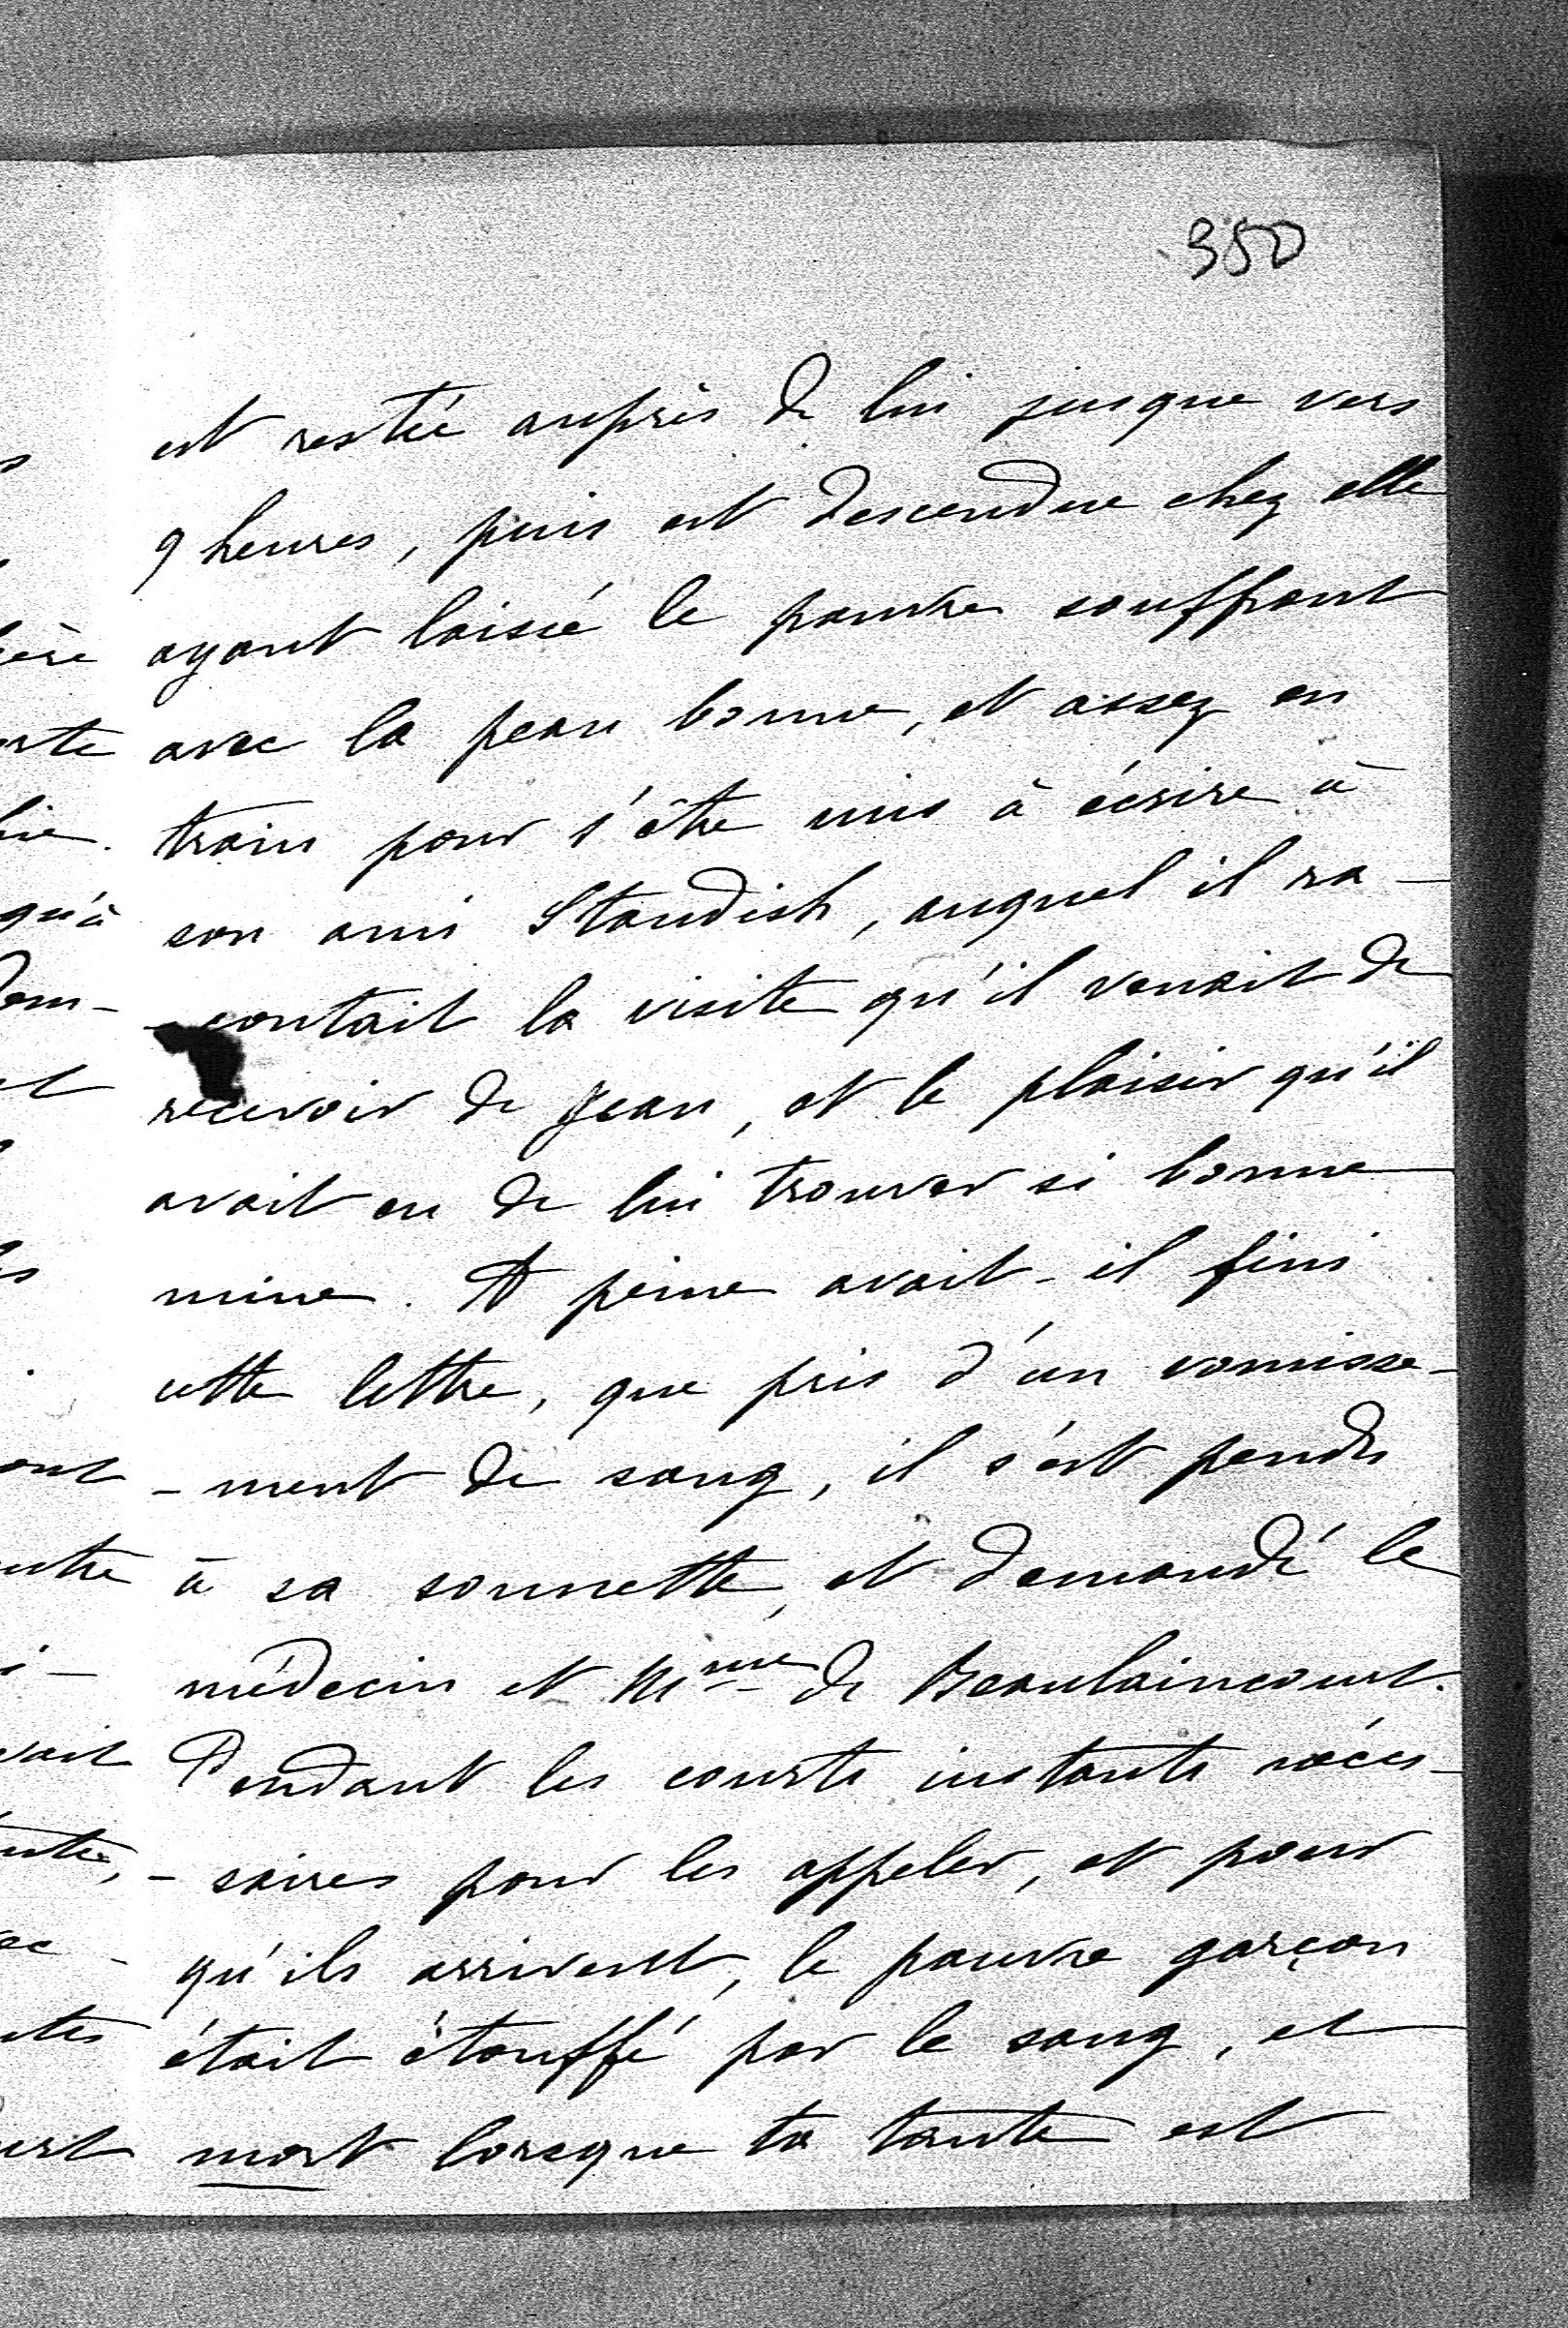 350
est restée auprès de lui jusque vers
9 heures, puis est descendue chez elle
ayant laissé le pauvre souffrant
avec la peau bonne, et assez en
train pour s'être mis à écrire à
son ami Standish, auquel il ra-
-contait la visite qu'il venait de
recevoir de Jean, et le plaisir qu'il
avait eu de lui trouver si bonne
mine. A peine avait-il fini
cette lettre, que pris d'un vomisse-
-ment de sang, il s'est pendu
à sa sonnette, et demandé le
médecin et Mme de Beaulaincourt.
Pendant les courts instants néces-
-saires pour les appeler, et pour
qu'ils arrivent, le pauvre garçon
était étouffé par le sang, et
mort lorsque ta tante est